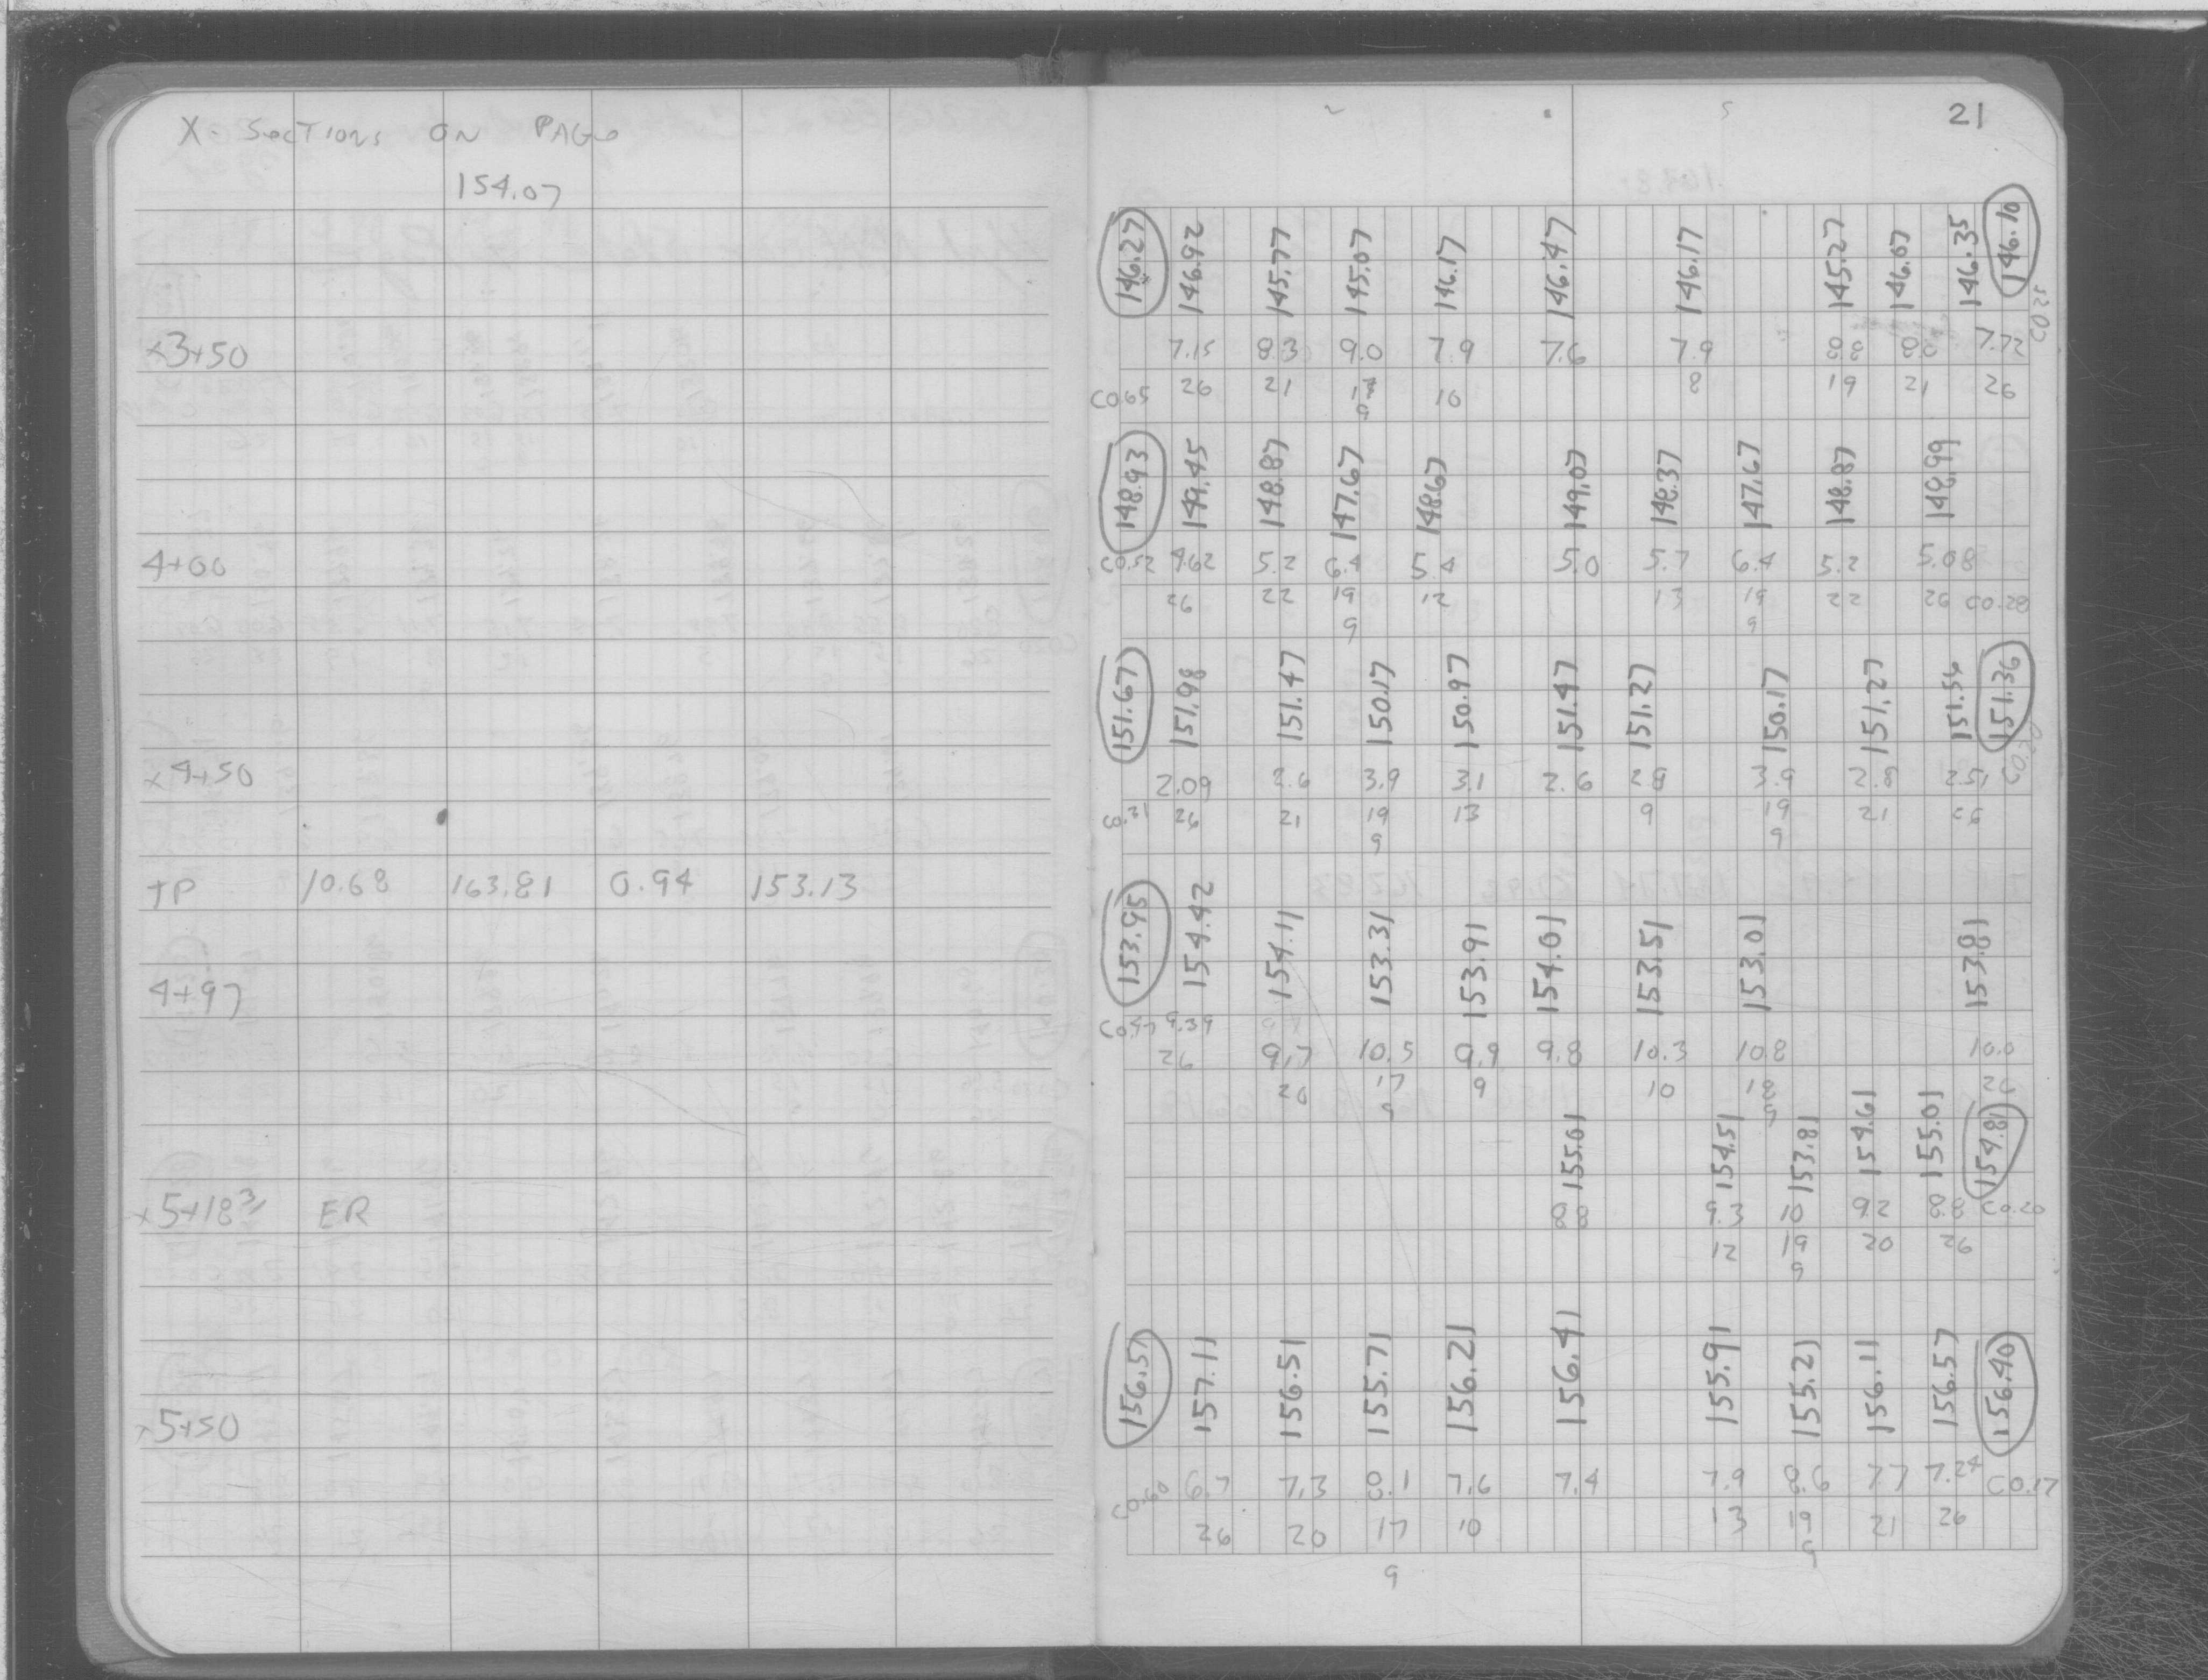 X-SECTIONS ON PAGE
154.07
x3+50
4+00
x4+50
TP 10.68 163.81 0.94 153.13
4+97
x5+18 ER
5+50
21
146.27 146.92 145.77 145.07 146.17 146.47 146.17 145.27 146.07 146.35 146.10
7.15 8.3 9.0 7.9 7.6 7.9 8.8 8.0 7.72 C0.25
C0.65 26 21 10 8 19 21 26
9
148.93 149.45 148.87 147.67 148.67 149.07 148.37 147.67 148.87 148.99
C0.52 4.62 5.2 6.4 5.4 5.0 5.7 6.4 5.2 5.08
26 22 19 12 13 19 22 26 C0.28
9 9
151.67 151.98 151.47 150.17 150.97 151.47 151.27 150.17 151.27 151.56 151.36
2.09 2.6 3.9 3.1 2.6 2.8 3.9 2.8 2.51
C0.31 26 21 19 13 9 19 21 26
9 9
153.95 154.42 154.11 153.31 153.91 154.01 153.51 153.01 153.81
C0.47 9.39
26 9.7 10.5 9.9 9.8 10.3 10.8 10.0
20 17 9 10 18 26
9 9
155.01 154.51 153.81 154.61 155.01 154.81
8.8 9.3 10 9.2 8.8 C0.20
12 19 20 26
9
156.51 157.11 156.51 155.71 156.21 156.41 155.91 155.21 156.11 156.57 156.40
C0.60 6.7 7.3 8.1 7.6 7.4 7.9 8.6 7.7 7.24 C0.17
26 20 17 10 13 19 21 26
9 9